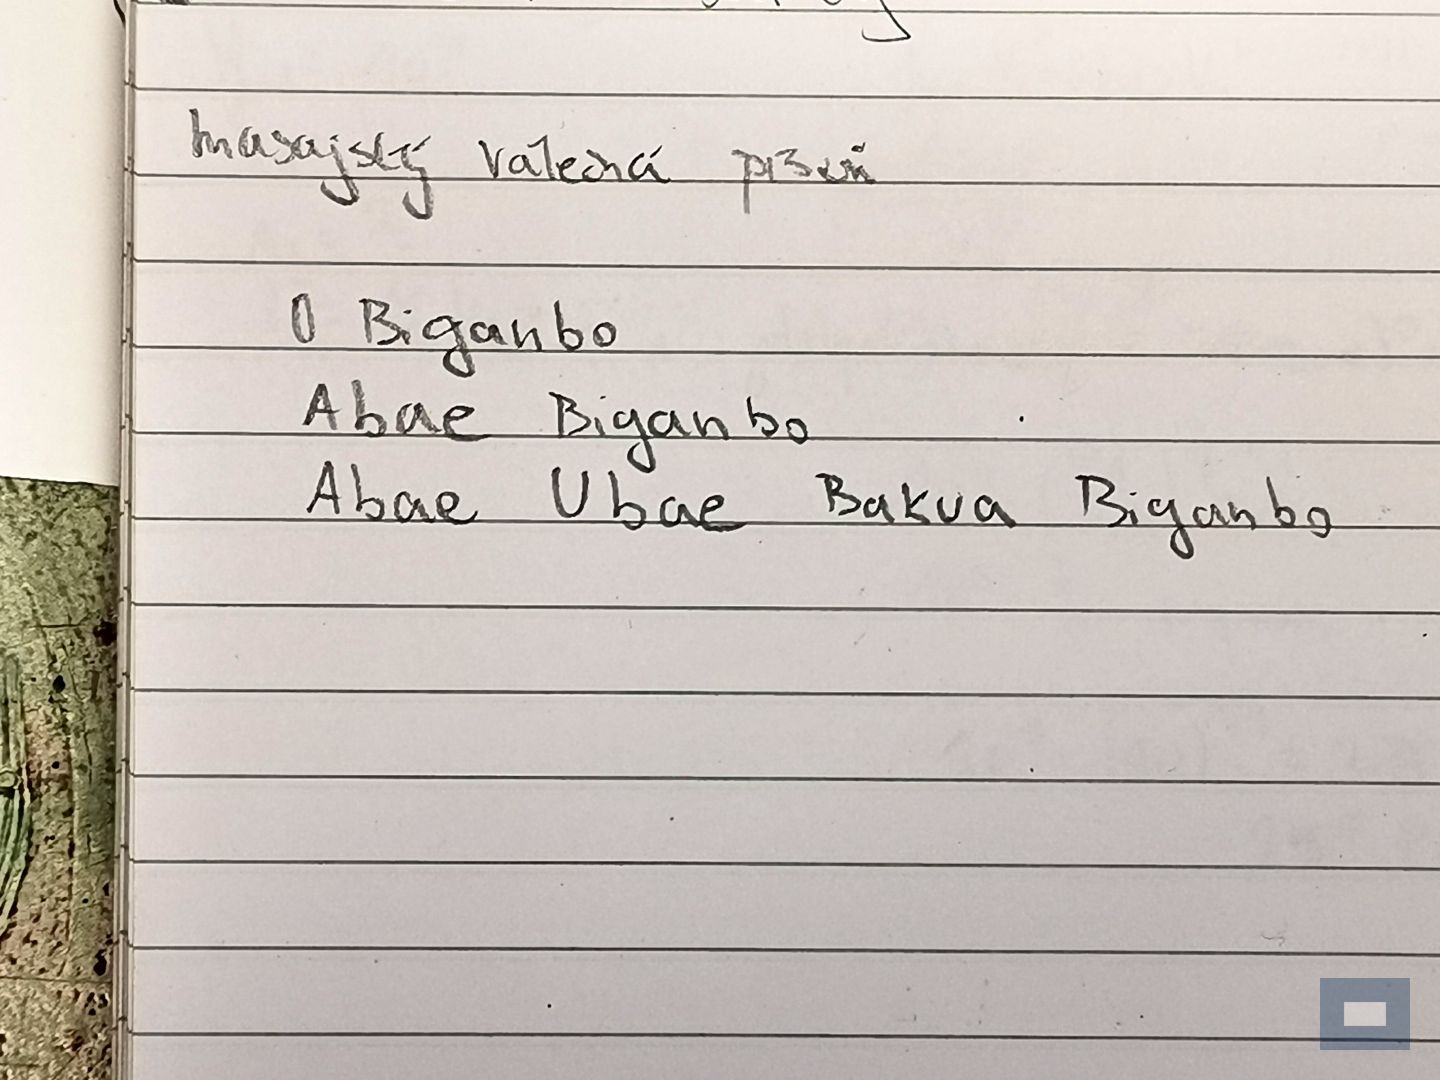 masajský válečná píseň
O Biganbo
Abae Biganbo
Abae Ubae Bakua Biganbo